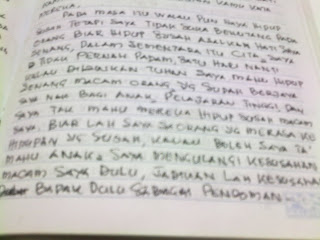 PADA MASA ITU WALAU PUN SAYA HIDUP
SUSAH TETAPI SAYA TIDAK SUKA BERHUTANG PADA
ORANG BIAR HIDUP SUSAH ASALKAN HATI SAYA
SENANG, DALAM SEMENTARA ITU CITA2 SAYA
TIDAK PERNAH PADAM, SATU HARI NANTI
KALAU DIIZINKAN TUHAN SAYA MAHU HIDUP
SENANG MACAM ORANG YG SUDAH BERJAYA
SAYA NAK BAGI ANAK2 PELAJARAN TINGGI, DAN
SAYA TAK MAHU MEREKA HIDUP SUSAH MACAM
SAYA, BIAR LAH SAYA SEORANG YG MERASA KE
HIDUPAN YG SUSAH, KALAU BOLEH SAYA TA'
MAHU ANAK2 SAYA MENGULANGI KESUSAHAN
MACAM SAYA DULU, JADIKAN LAH KESUSAHAN
BAPAK DULU SEBAGAI PENDOMAN